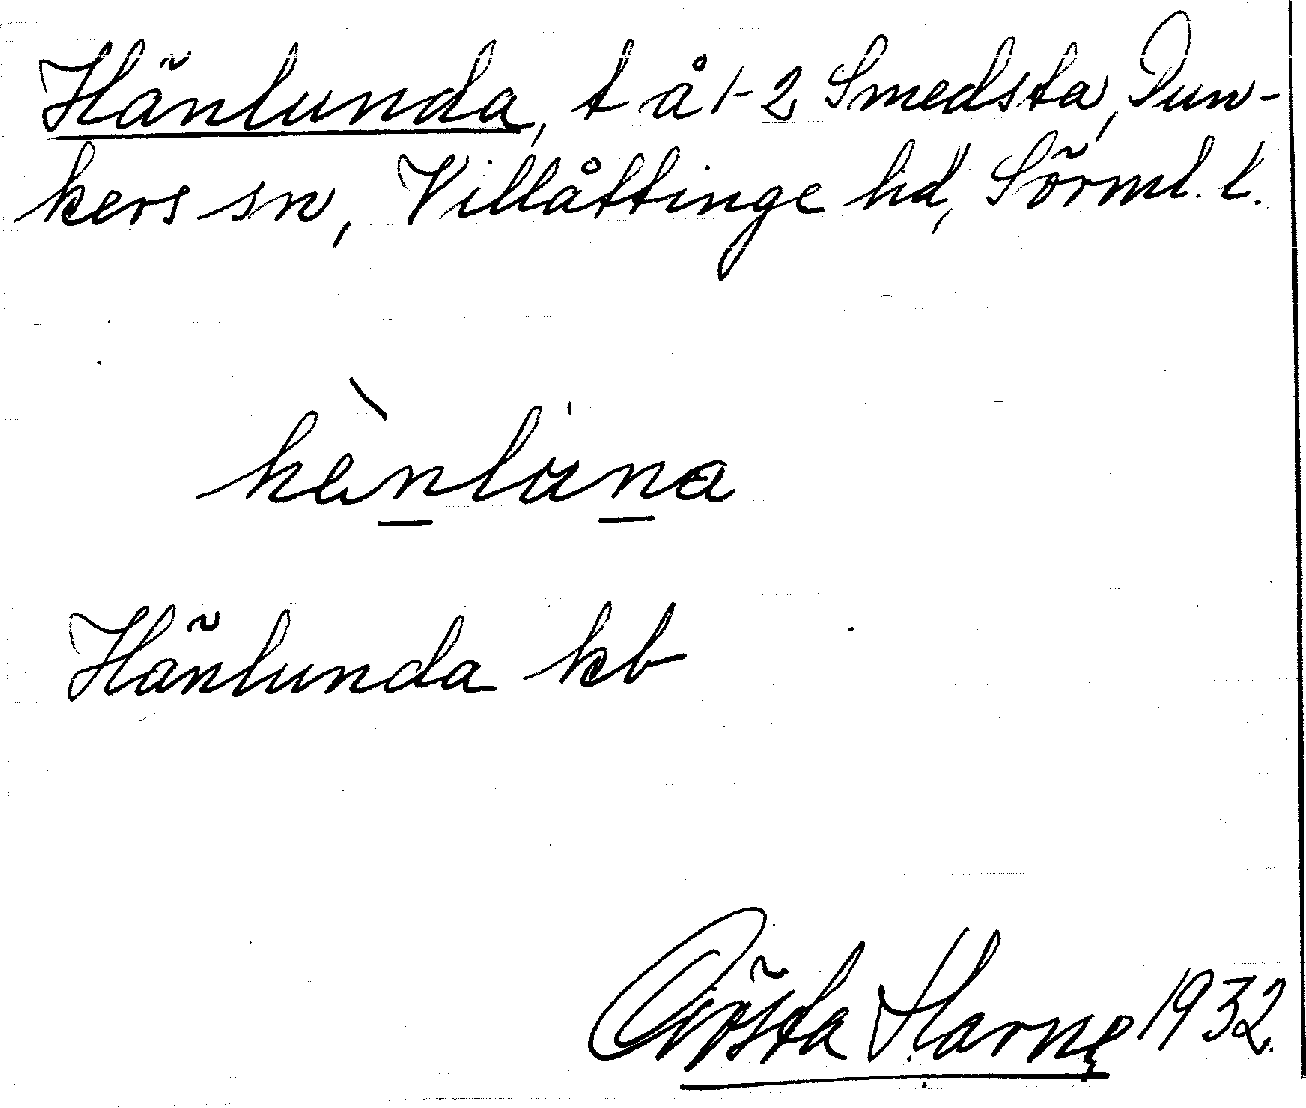 Hänlunda, t å 1-2 Smedsta, Dun-
kers sn, Villåttinge hd, Sörml. l.
hä̀nlu̇na
Hänlunda kb
Gösta Harne 1932.